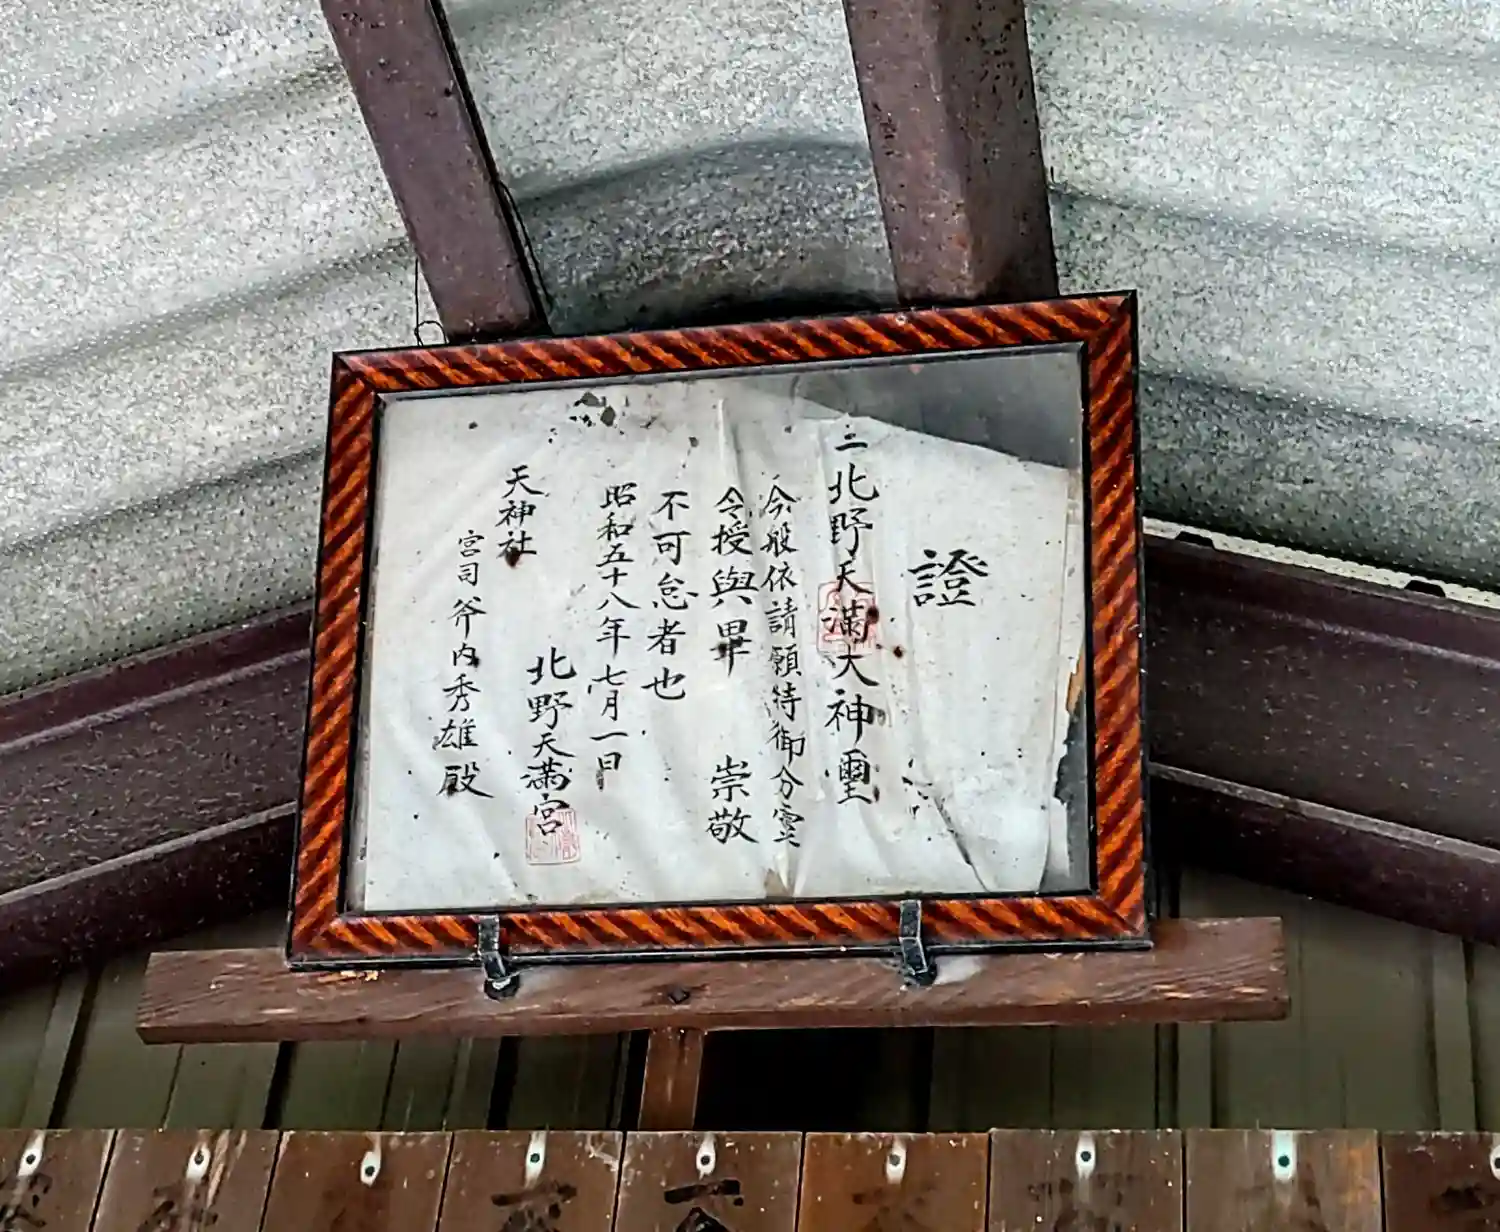 證
一北野天満大神璽
今般依請願特御分霊
令授與畢 崇敬
不可怠者也
昭和五十八年七月一日
北野天満宮
天神社
宮司 斧内秀雄殿